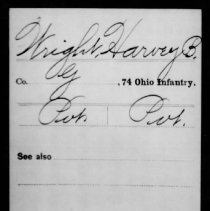 Wright, Harvey B.
Co. G, 74 Ohio Infantry.
Pvt. Pvt.
See also